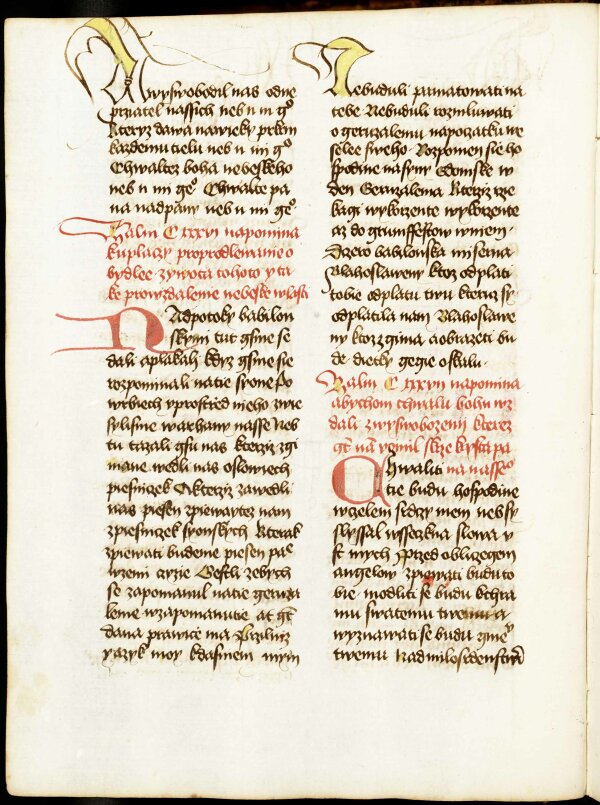 A wyswobodil nas odne
przatel nassich neb n m g°
Kteryz dawa nawieky pokrm
kazdemu tielu neb n mi g°
Chwaltez boha nebeskeho
neb n mi ge° Chwalte pa
na nadpany neb n mi ge°
Zalm C xxxvi napomina
kuplaczy proprodlewanie o
bydlee zywota tohoto y ta
ke prowzdalenie nebeske wlasti
Nadpotoky babilon
skymi tut gsme se
dali aplakali kdyz gsme sie
rozpominali natie syone Po
wrbiech yprostred nieho zwie
sylisme warhany nasse Neb
tu tazali gsu nas kterziz zgi
mane wedli nas oslowiech
piesniczek Okterziz zawedli
nas piesen zpiewaytez nam
zpiesniczek syonskych Kterak
zpiewati budeme piesen pac
wzemi czyzie Gestli zebych
se zapomanul natie geruza
leme wzapomanutie at gt
dana prawice ma Przilniz
yazyk moy kdasniem mym
Nebuduli pamatowati na
tebe Nebuduli rozmluwati
o geruzalemu napoczatku we
selee sweho Rozpomen sie ho
spodine nasyny Edomske w
den Geruzalema Kterziz rze
kagi wykorzente wykorzente
az do gruntfestow wniem
Dzero babilonska miserna
Blahoslaweny ktoz odplati
tobie odplatu twu kteruz sy
odplatila nam Blahoslawe
ny ktoz zgima aobrazeti bu
de dietky gegie oskalu
Zalm C xxxvii napomina
abychom chwalu bohu wz
dali zwyswobozeni kterez
gt nam vczinil skrze krysta pa
Chwaliti na nasseo
tie budu hospodine
wczelem srdczy mem neb sy
slyssal wsseczkna slowa v
st mych Przed obliczegem
angelow zpiewati budu to
bie modliti se budu kchra
mu swatemu twemu a
wyznawati se budu gmenu
twemu Nadmilosrdenstwi